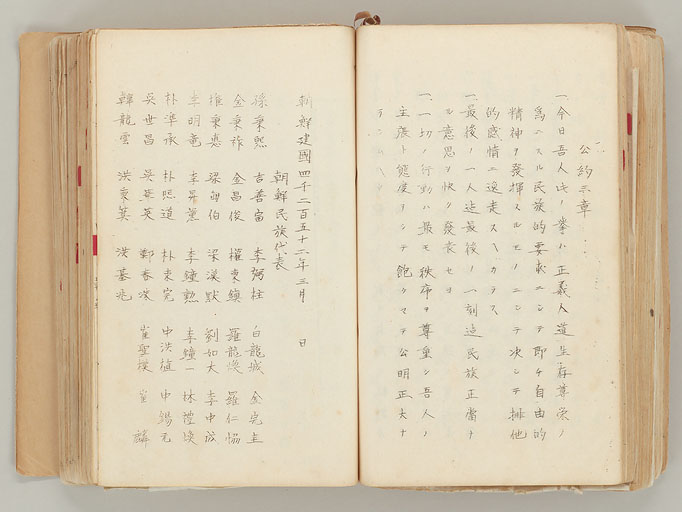 公約三章
一、今日吾人此ノ挙ハ正義人道生存尊栄ノ
為ニスル民族的要求ニシテ即チ自由的
精神ヲ發揮スルモノニシテ決シテ排他
的感情ニ逸走スヘカラス
一、最後ノ一人迄最後ノ一刻迄民族正當ナ
ル意思ヲ快ク發表セヨ
一、一切ノ行動ハ最モ秩序ヲ尊重シ吾人ノ
主張ト態度ヲシテ飽クマテ公明正大ナ
朝鮮建國四千二百五十二年三月 日
朝鮮民族代表
孫秉熙 吉善宙 李弼柱 白龍城 金完圭
金秉祚 金昌俊 權東鎮 羅龍煥 羅仁協
權秉悳 梁甸伯 梁漢默 劉如大 李甲成
李明竜 李昇薫 李鐘勲 李鐘一 林禮煥
朴準承 朴熙道 朴東完 申洪植 申錫九
呉世昌 呉華英 鄭春洙 崔聖模 崔麟
韓龍雲 洪秉箕 洪基兆